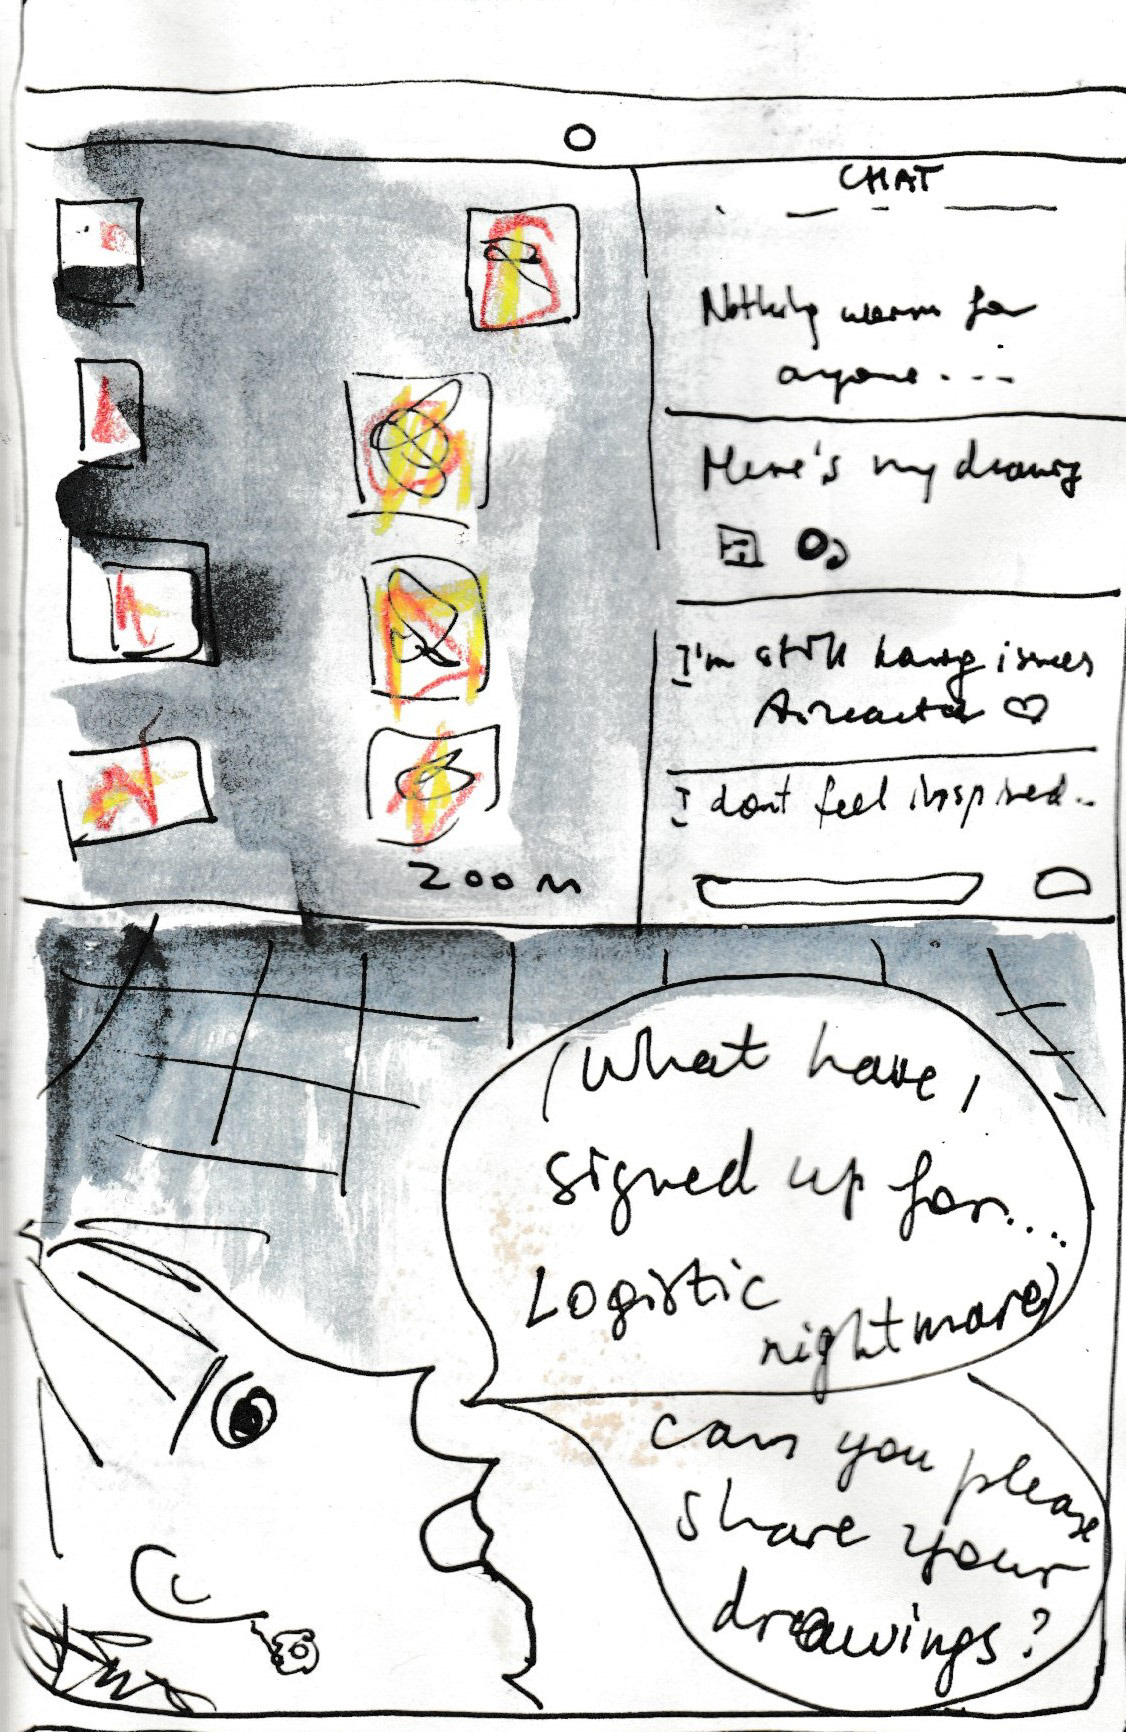 CHAT
Nothing worm for
anyone...
Here's my drawing
I'm still having issues
♡
I dont feel inspired..
ZOOM
(What have I
signed up for....
Logistic
nightmare)
can you please
share your
drawings?